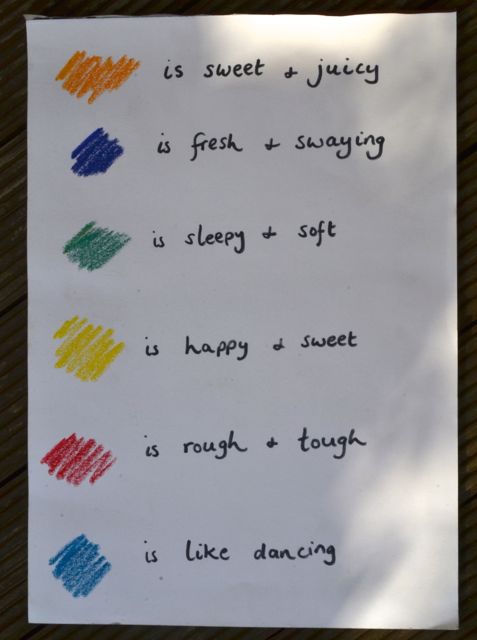 is sweet & juicy
is fresh & swaying
is sleepy & soft
is happy & sweet
is rough & tough
is like dancing